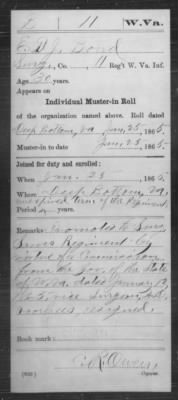 11 W.Va.
Bond
Surg, Co. , 11 Reg't W. Va. Inf.
Age 30 years.
Appears on
Individual Muster-in Roll
of the organization named above. Roll dated
Deep Bottom, Va Jan, 25, 1865.
Muster-in to date Jan, 25, 1865
Joined for duty and enrolled:
When Jan. 25, 1865.
Where Deep Bottom, Va,
unexpired term of the Regiment
Period years.
Remarks: Promoted to Surg,
Regiment By
virtue of a Commission
from the Gov. of the State
of W. Va, dated January
vice Surgeon,
resigned,
Book mark:
Copyist.